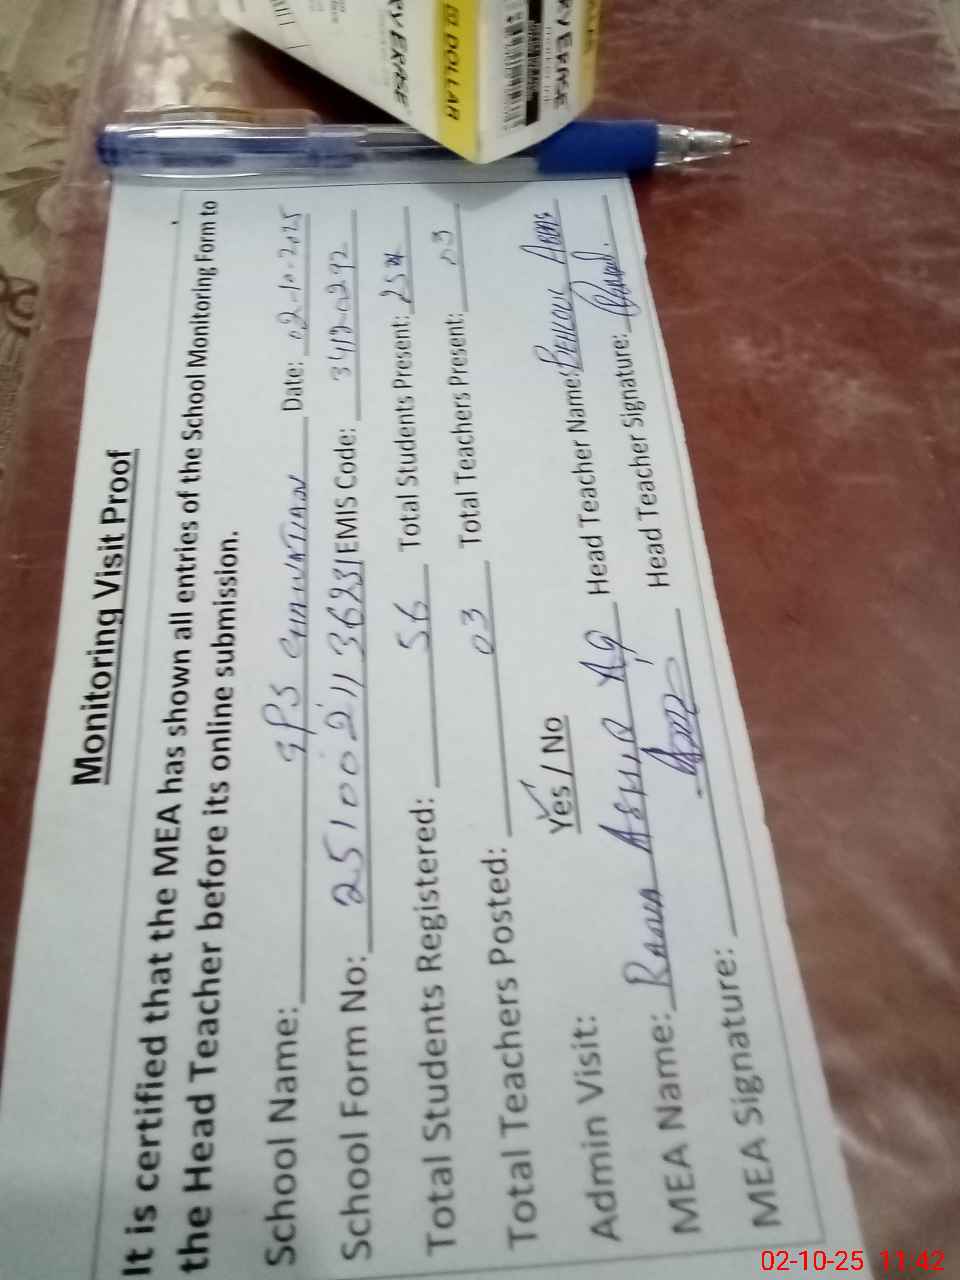 Monitoring Visit Proof
It is certified that the MEA has shown all entries of the School Monitoring Form to
the Head Teacher before its online submission.
School Name: GPS Date: 02-10-2025
School Form No: 2510021136231 EMIS Code:
Total Students Registered: 56 Total Students Present:
Total Teachers Posted: 03 Total Teachers Present: 03
Admin Visit: Yes / No Head Teacher Name:
MEA Name: Rana ASHIQ Head Teacher Signature:
MEA Signature:
DOLLAR
02-10-25 11:42